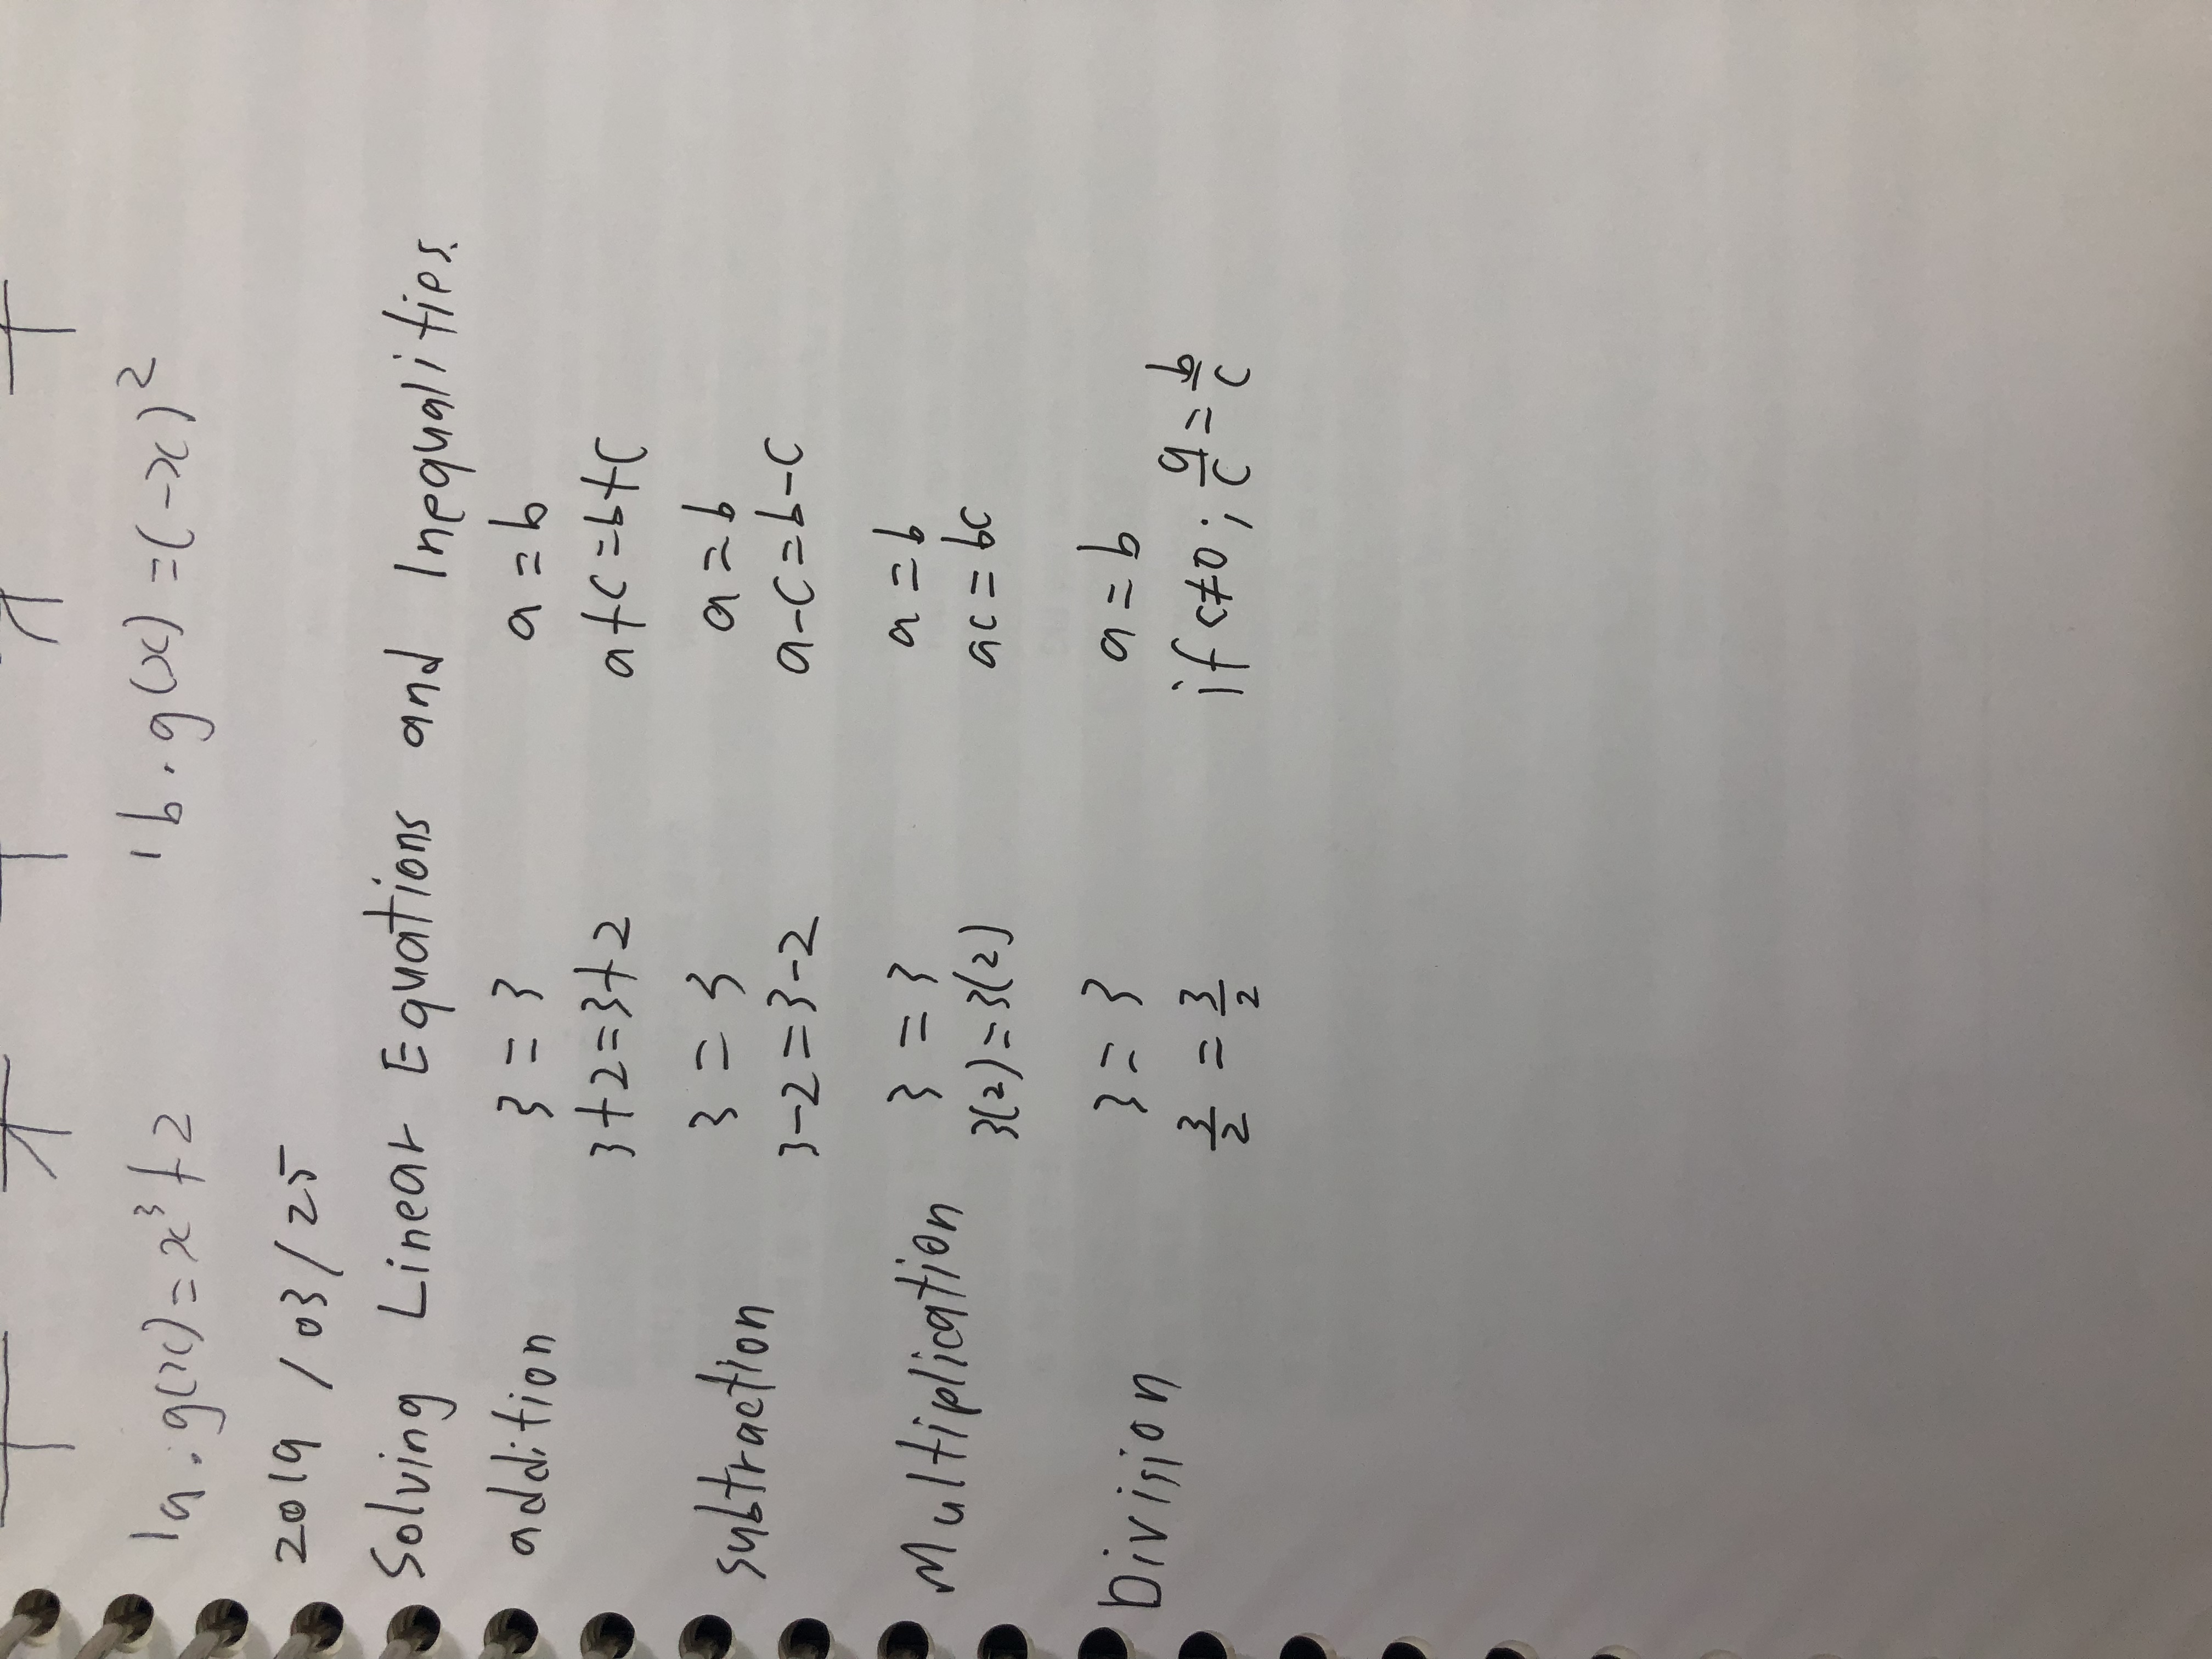 1a. g(x) = x³+2 1b. g(x) = (-x)²
2019 / 03 / 25
Solving Linear Equations and Inequalities.
addition 3 = 3 a = b
3+2=3+2 a+c=b+c
subtraction 3 = 3 a = b
3-2=3-2 a-c=b-c
Multiplication 3 = 3 a = b
3(2)=3(2) ac = bc
Division 3 = 3 a = b
3/2 = 3/2 if c≠0; a/c = b/c